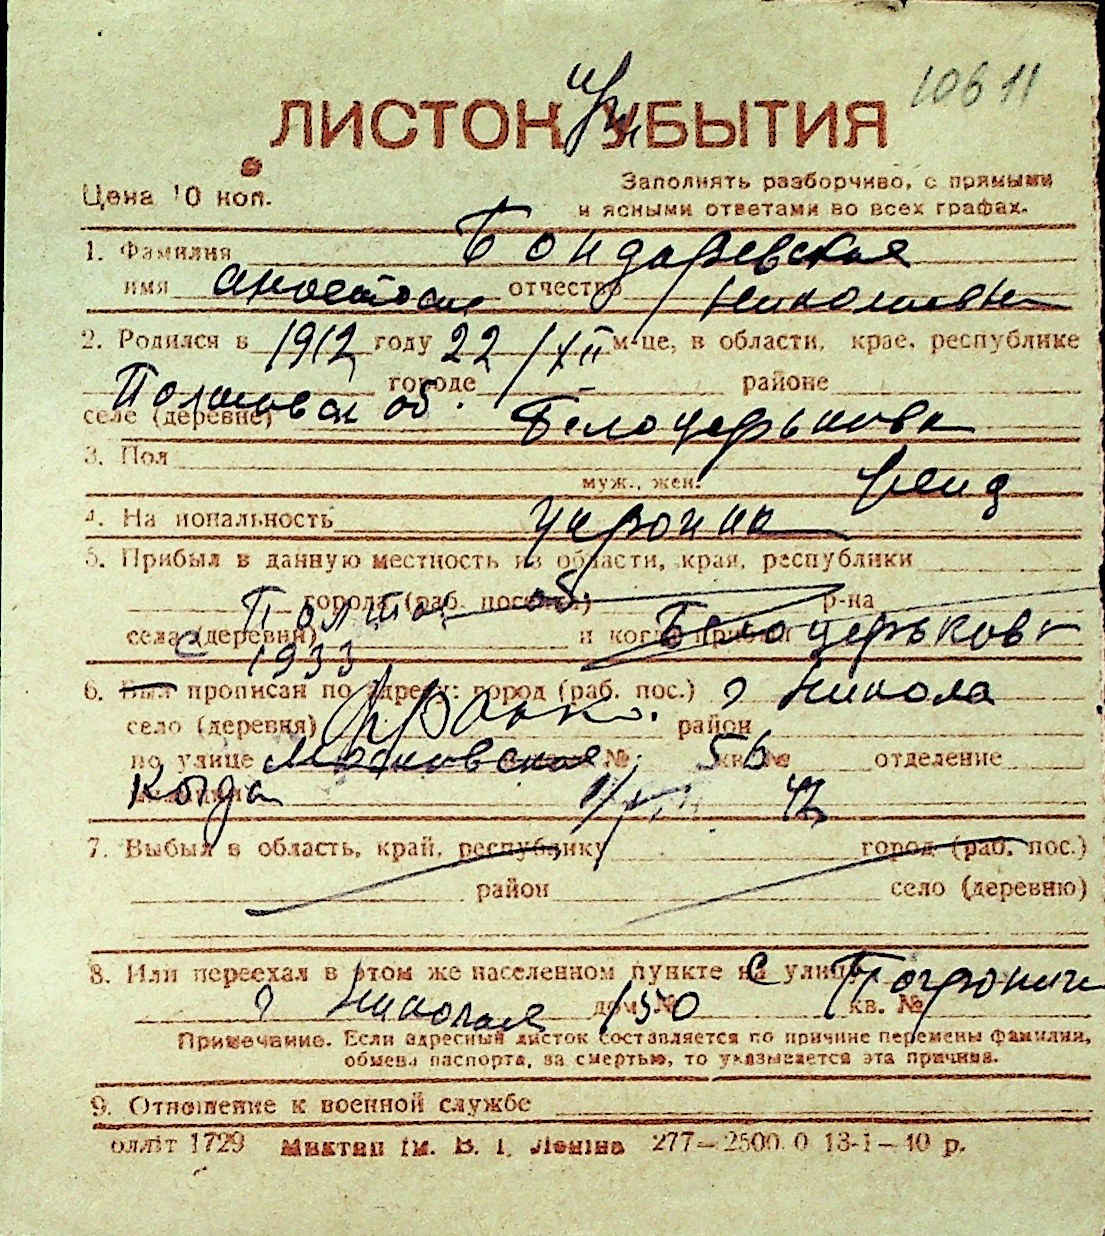 10611
ЛИСТОК УБЫТИЯ
Цена 10 коп.
Заполнять разборчиво, с прямыми
и ясными ответами во всех графах.
1. Фамилия Бондаревская
имя Анастасия отчество Николаевн
2. Родился в 1912 году 22/XII м-це, в области, крае, республике
Полтовская об. городе районе
селе (деревне) Белоцерьковк
3. Пол муж., жен. женщ
4. Национальность украинк
5. Прибыл в данную местность из области, края, республики
Полтов об города (раб. поселка) р-на
села (деревни) и когда прибыл Белоцерьковк
с 1933
6. Был прописан по адресу: город (раб. пос.) г Никола
село (деревня) район
по улице Московская № 56 кв. № отделение
Когда 42
7. Выбыл в область, край, республику город (раб. пос.)
район село (деревню)
8. Или переехал в этом же населенном пункте на улицу с Погранич
г Николая дом № 150 кв. №
Примечание. Если адресный листок составляется по причине перемены фамилии,
обмена паспорта, за смертью, то указывается эта причина.
9. Отношение к военной службе
оллiт 1729 Миктип iм. В. I. Ленiна 277—2500.0 13-I—40 р.